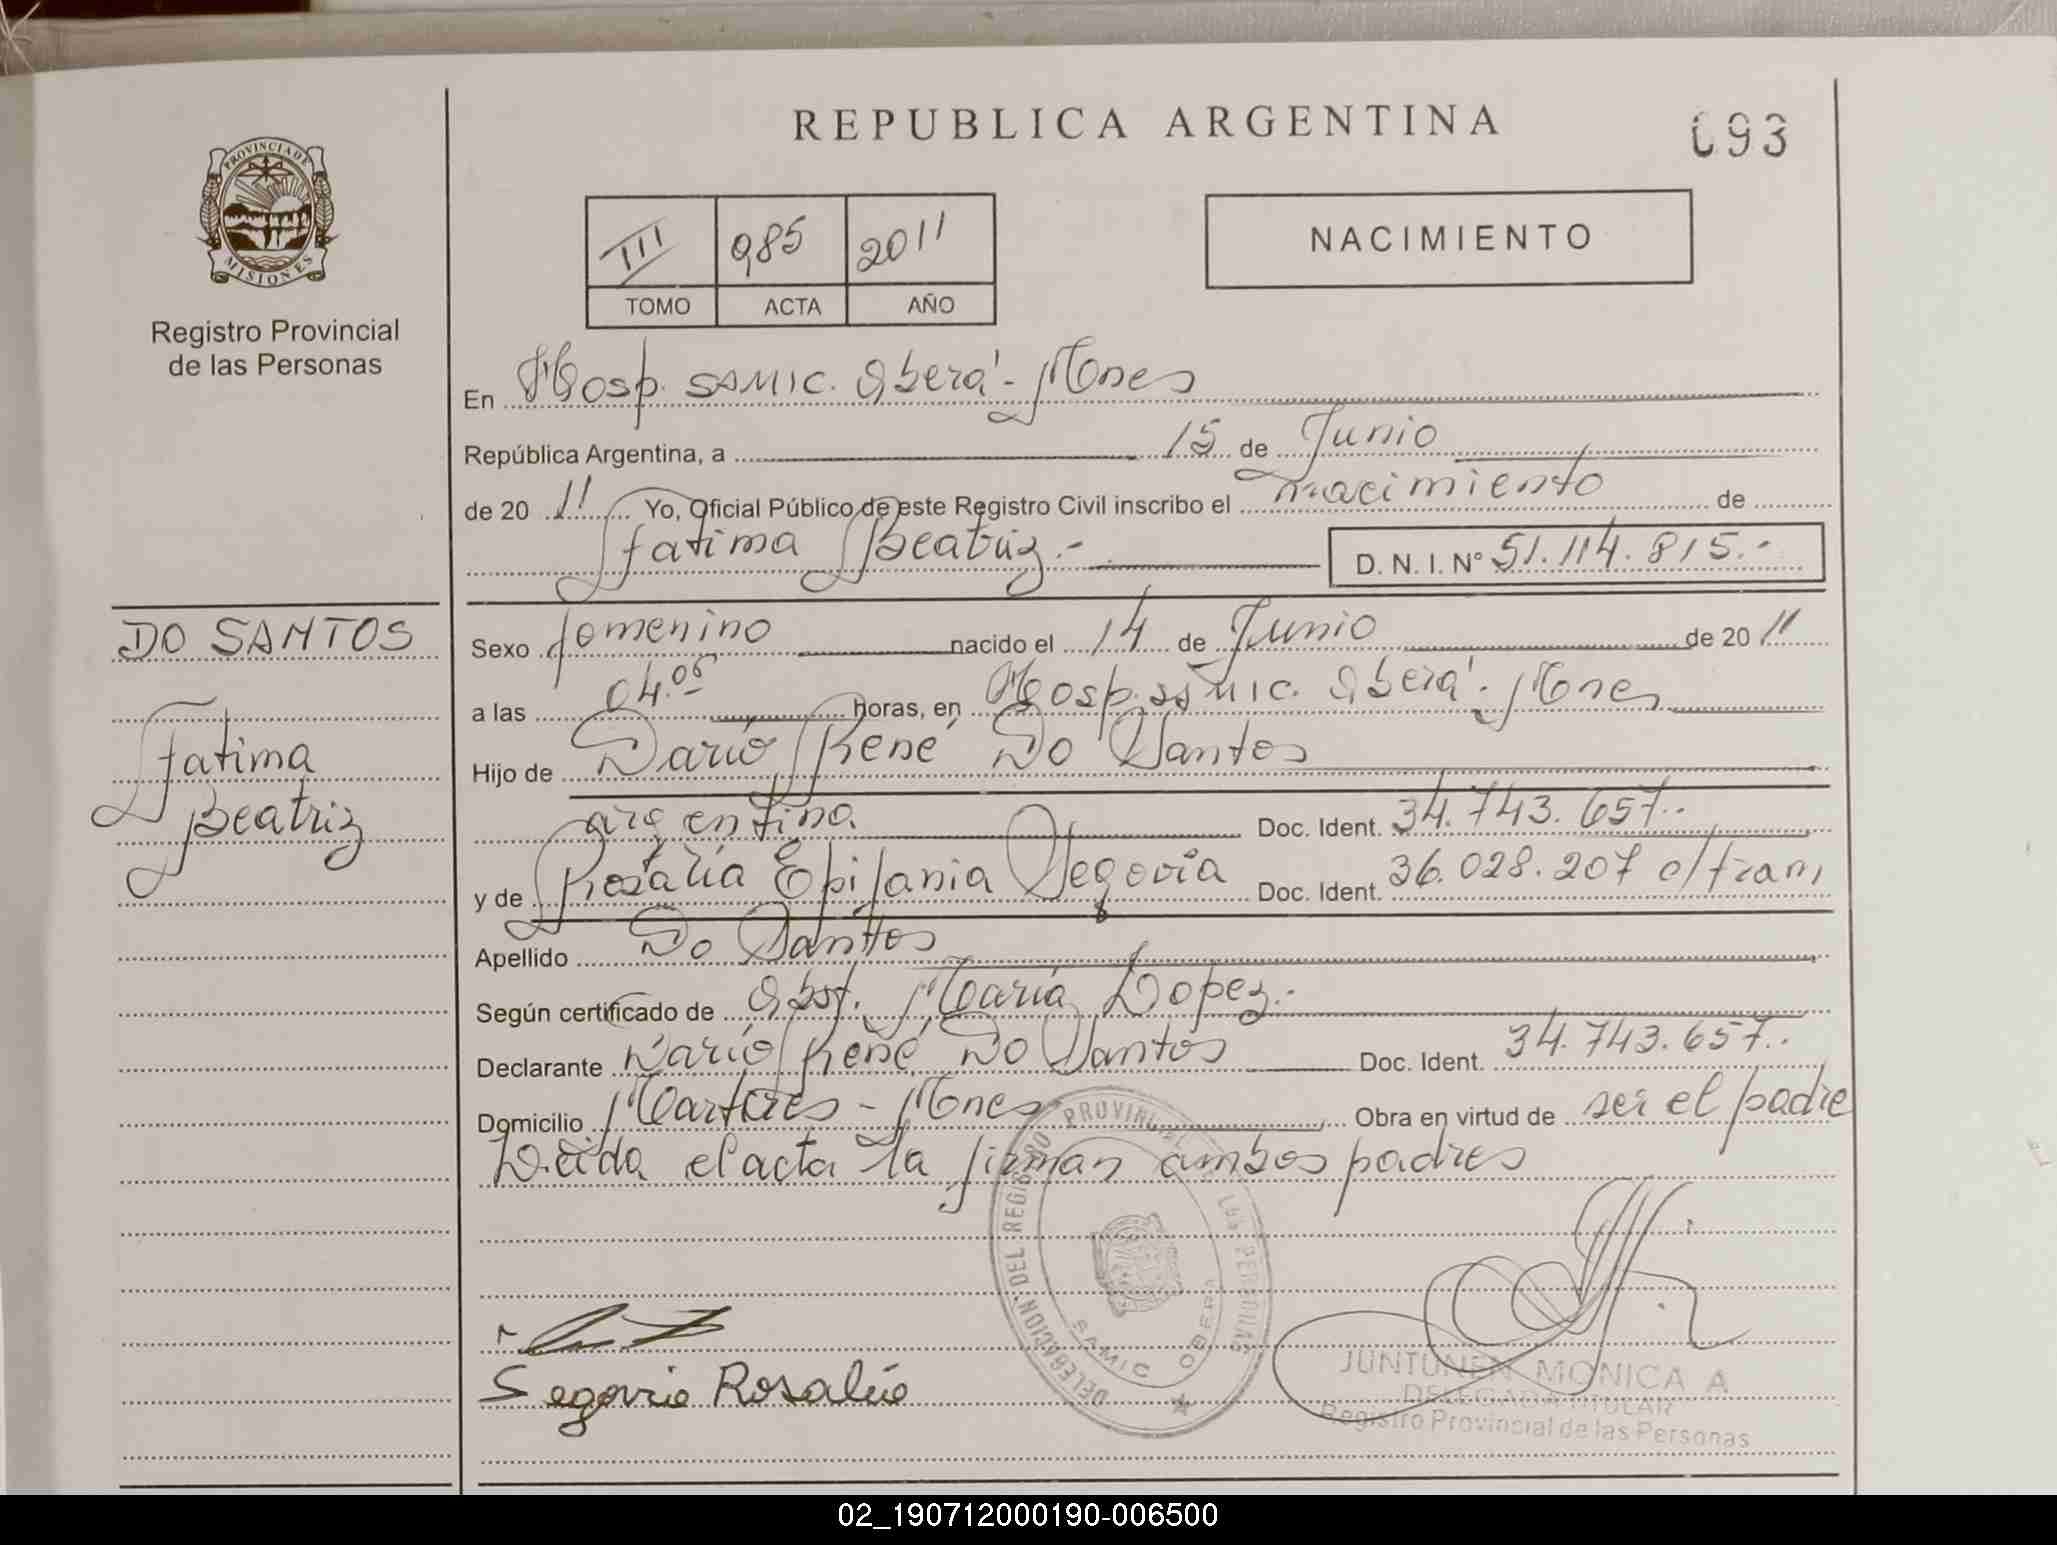 REPUBLICA ARGENTINA
093
PROVINCIA DE
MISIONES
Registro Provincial
de las Personas
III 985 2011
TOMO ACTA AÑO
NACIMIENTO
En Hosp. SAMIC. Oberá - Mnes
República Argentina, a 15 de Junio
de 20 11 Yo, Oficial Público de este Registro Civil inscribo el nacimiento de
Fatima Beatriz.- D. N. I. N° 51.114.815.-
DO SANTOS
Fatima
Beatriz
Sexo femenino nacido el 14 de Junio de 20 11
a las 04.05 horas, en Hosp. SAMIC. Oberá - Mnes
Hijo de Darío René Do Santos
argentina Doc. Ident. 34.743.657..
y de Rosalía Epifania Segovia Doc. Ident. 36.028.207 c/tram
Apellido Do Santos
Según certificado de Obst. María Lopez.-
Declarante Darío René Do Santos Doc. Ident. 34.743.657..
Domicilio Martires - Mnes Obra en virtud de ser el padre
Leída el acta la firman ambos padres
DELEGACION DEL REGISTRO PROVINCIAL DE LAS PERSONAS
SAMIC OBERA
Segovia Rosalía
JUNTUNEN MONICA A
DELEGADA TITULAR
Registro Provincial de las Personas
02_190712000190-006500